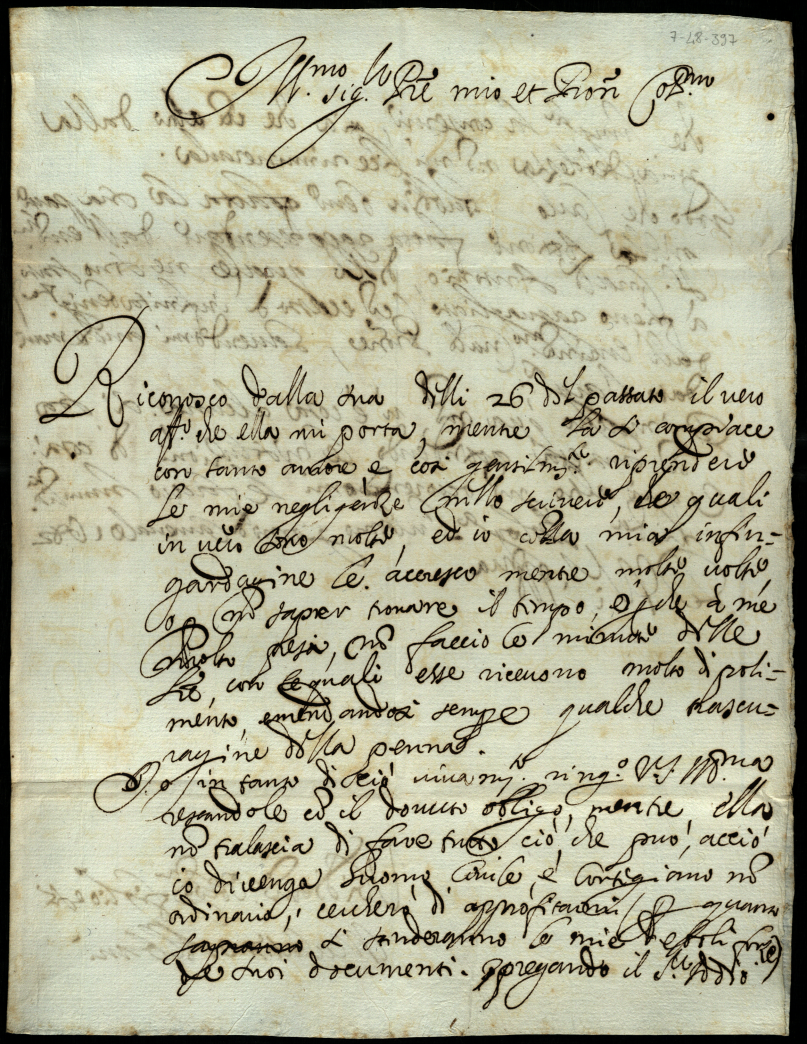 7-48-397
Ill.mo Sig.r P̃re mio et Pron̄ Col.mo
Riconosco dalla sua delli 26 del passato il vero
aff.o che ella mi porta, mentre si compiace
con tanto amore e così gentilm.te riprendere
le mie negligenze nello scrivere, le quali
in vero sono molte, ed io colla mia infin-
gardagine le accresco mentre molte volte,
o p nō saper trovare il tempo, ò che à me
molto pesa, nō faccio le minute delle
Lr̃e, con le quali esse ricevono molto di poli-
mento, emendandosi sempre qualche trascu-
ragine della penna.
Io in tanto di ciò vivam.te ring.o V.S. Ill.ma
restandole cō il dovuto obligo, mentre ella
nō tralascia di fare tutto ciò, che può, acciò
io divenga huomo Civile, e Cortigiano nō
ordinario, cercherò di approfitarmi p quanto
si stenderanno le mie deboli forze
de suoi documenti. pregando il Sig.r Iddio